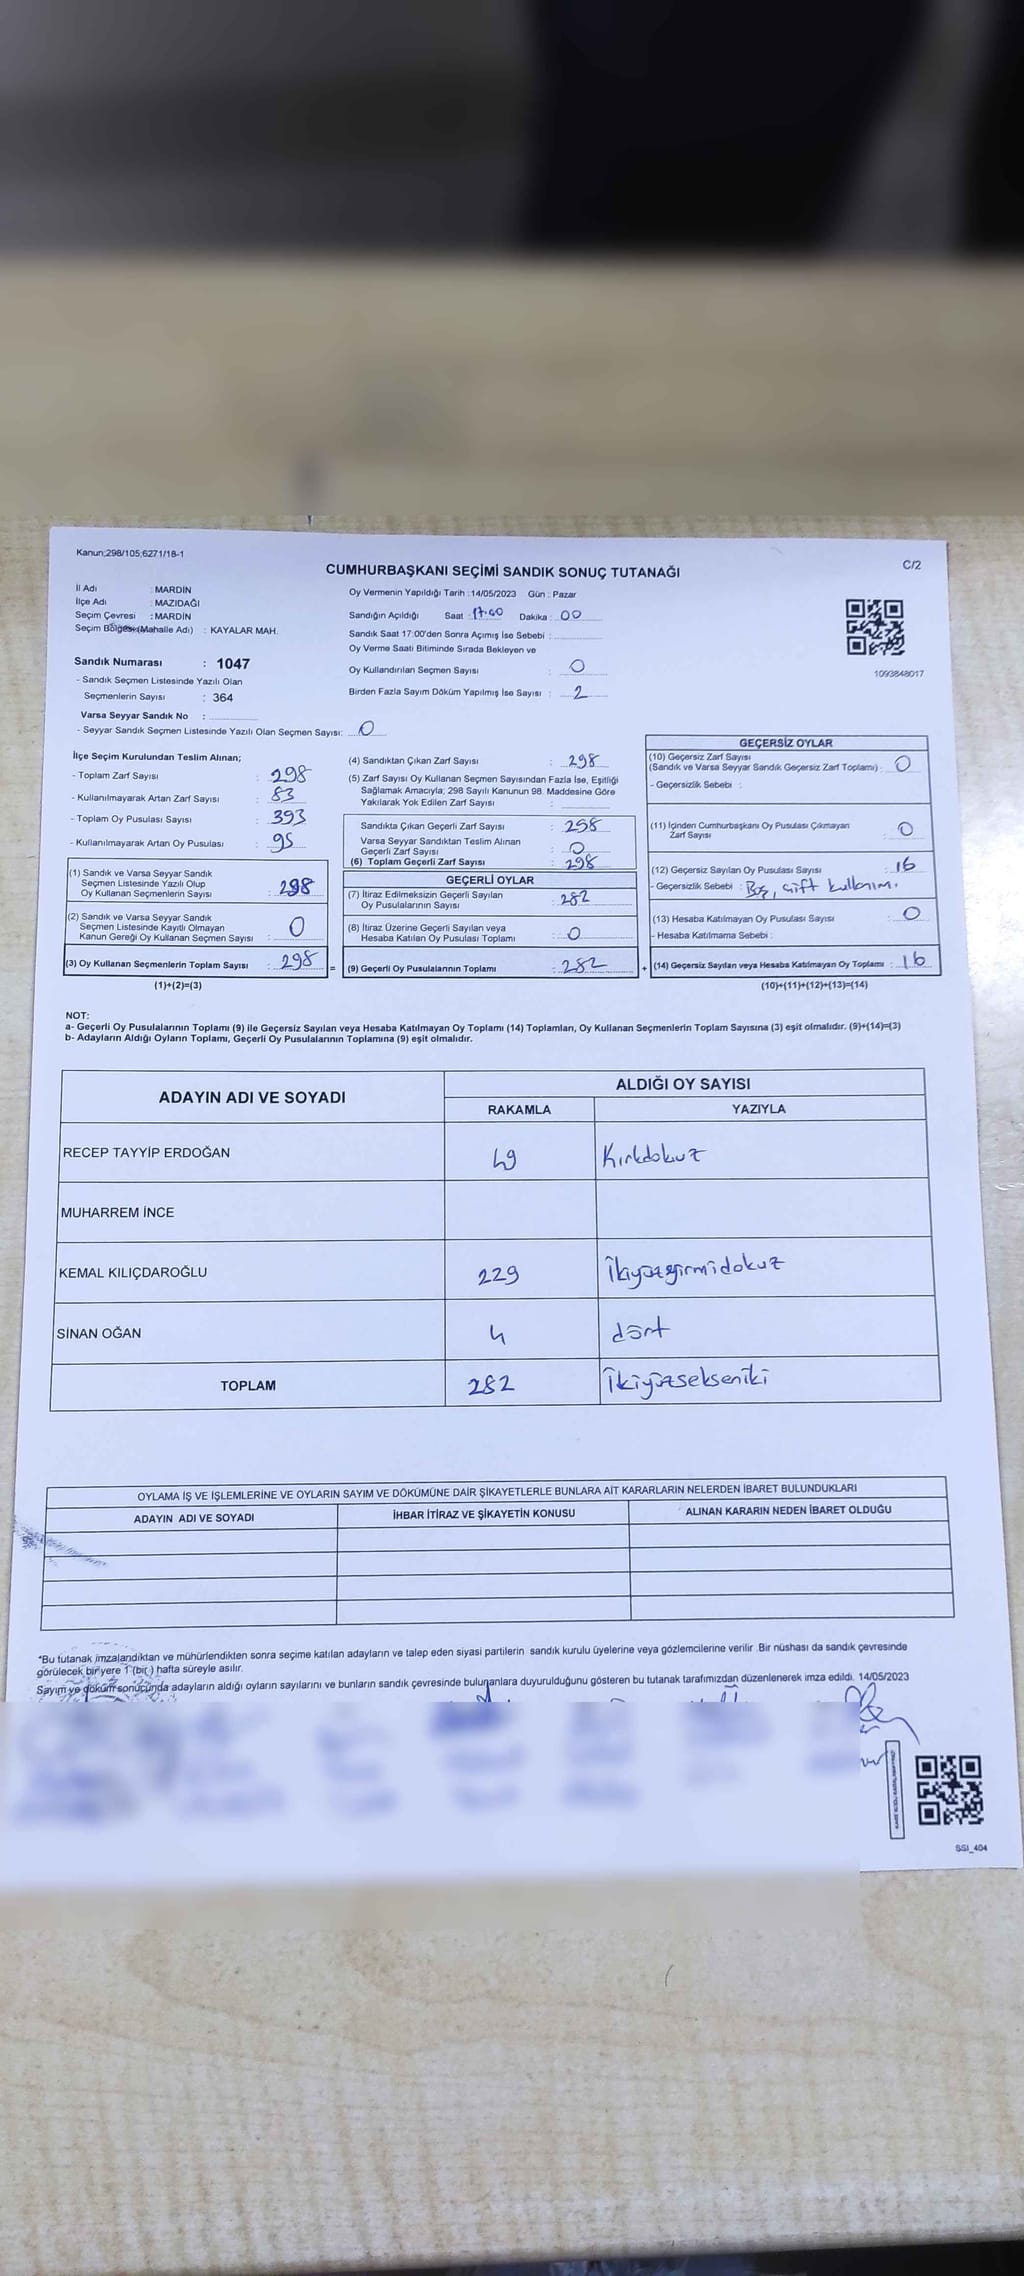 Kanun;298/105;6271/18-1
C/2
CUMHURBAŞKANI SEÇİMİ SANDIK SONUÇ TUTANAĞI
İl Adı : MARDİN
İlçe Adı : MAZIDAĞI
Seçim Çevresi : MARDİN
Seçim Bölgesi (Mahalle Adı) : KAYALAR MAH.
Sandık Numarası : 1047
- Sandık Seçmen Listesinde Yazılı Olan
Seçmenlerin Sayısı : 364
Varsa Seyyar Sandık No :
- Seyyar Sandık Seçmen Listesinde Yazılı Olan Seçmen Sayısı: 0
Oy Vermenin Yapıldığı Tarih : 14/05/2023 Gün : Pazar
Sandığın Açıldığı Saat : 17:00 Dakika : 00
Sandık Saat 17:00'den Sonra Açımış İse Sebebi :
Oy Verme Saati Bitiminde Sırada Bekleyen ve
Oy Kullandırılan Seçmen Sayısı : 0
Birden Fazla Sayım Döküm Yapılmış İse Sayısı : 2
1093848017
İlçe Seçim Kurulundan Teslim Alınan;
- Toplam Zarf Sayısı : 298
- Kullanılmayarak Artan Zarf Sayısı : 83
- Toplam Oy Pusulası Sayısı : 393
- Kullanılmayarak Artan Oy Pusulası : 95
(1) Sandık ve Varsa Seyyar Sandık
Seçmen Listesinde Yazılı Olup
Oy Kullanan Seçmenlerin Sayısı : 298
(2) Sandık ve Varsa Seyyar Sandık
Seçmen Listesinde Kayıtlı Olmayan
Kanun Gereği Oy Kullanan Seçmen Sayısı : 0
(3) Oy Kullanan Seçmenlerin Toplam Sayısı : 298
(1)+(2)=(3)
(4) Sandıktan Çıkan Zarf Sayısı : 298
(5) Zarf Sayısı Oy Kullanan Seçmen Sayısından Fazla İse, Eşitliği
Sağlamak Amacıyla; 298 Sayılı Kanunun 98. Maddesine Göre
Yakılarak Yok Edilen Zarf Sayısı :
Sandıkta Çıkan Geçerli Zarf Sayısı : 298
Varsa Seyyar Sandıktan Teslim Alınan
Geçerli Zarf Sayısı : 0
(6) Toplam Geçerli Zarf Sayısı : 298
GEÇERLİ OYLAR
(7) İtiraz Edilmeksizin Geçerli Sayılan
Oy Pusulalarının Sayısı : 282
(8) İtiraz Üzerine Geçerli Sayılan veya
Hesaba Katılan Oy Pusulası Toplamı : 0
= (9) Geçerli Oy Pusulalarının Toplamı : 282
GEÇERSİZ OYLAR
(10) Geçersiz Zarf Sayısı
(Sandık ve Varsa Seyyar Sandık Geçersiz Zarf Toplamı) : 0
- Geçersizlik Sebebi :
(11) İçinden Cumhurbaşkanı Oy Pusulası Çıkmayan
Zarf Sayısı : 0
(12) Geçersiz Sayılan Oy Pusulası Sayısı : 16
- Geçersizlik Sebebi : Boş, çift kullanım.
(13) Hesaba Katılmayan Oy Pusulası Sayısı : 0
- Hesaba Katılmama Sebebi :
+ (14) Geçersiz Sayılan veya Hesaba Katılmayan Oy Toplamı : 16
(10)+(11)+(12)+(13)=(14)
NOT:
a- Geçerli Oy Pusulalarının Toplamı (9) ile Geçersiz Sayılan veya Hesaba Katılmayan Oy Toplamı (14) Toplamları, Oy Kullanan Seçmenlerin Toplam Sayısına (3) eşit olmalıdır. (9)+(14)=(3)
b- Adayların Aldığı Oyların Toplamı, Geçerli Oy Pusulalarının Toplamına (9) eşit olmalıdır.
ADAYIN ADI VE SOYADI
ALDIĞI OY SAYISI
RAKAMLA YAZIYLA
RECEP TAYYİP ERDOĞAN 49 Kırkdokuz
MUHARREM İNCE
KEMAL KILIÇDAROĞLU 229 İkiyüzyirmidokuz
SİNAN OĞAN 4 dört
TOPLAM 282 İkiyüzsekseniki
OYLAMA İŞ VE İŞLEMLERİNE VE OYLARIN SAYIM VE DÖKÜMÜNE DAİR ŞİKAYETLERLE BUNLARA AİT KARARLARIN NELERDEN İBARET BULUNDUKLARI
ADAYIN ADI VE SOYADI İHBAR İTİRAZ VE ŞİKAYETİN KONUSU ALINAN KARARIN NEDEN İBARET OLDUĞU
*Bu tutanak imzalandıktan ve mühürlendikten sonra seçime katılan adayların ve talep eden siyasi partilerin sandık kurulu üyelerine veya gözlemcilerine verilir. Bir nüshası da sandık çevresinde
görülecek bir yere 1 (bir) hafta süreyle asılır.
Sayım ve döküm sonucunda adayların aldığı oyların sayılarını ve bunların sandık çevresinde bulunanlara duyurulduğunu gösteren bu tutanak tarafımızdan düzenlenerek imza edildi. 14/05/2023
SSI_404